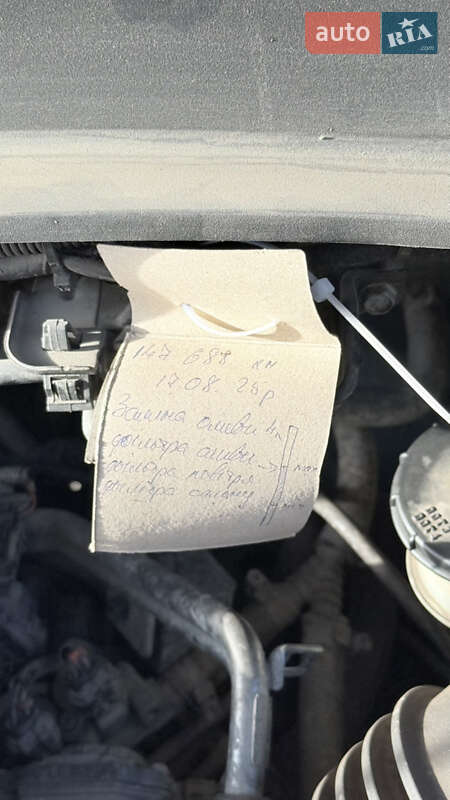 auto RIA
.com
147 688 км
17.08.25р
Заміна оливи
фільтра оливи
фільтра повітря
фільтра салону